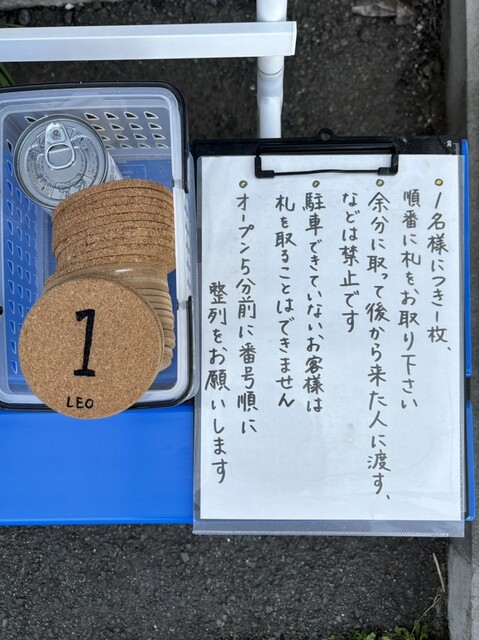 ・1名様につき一枚、
順番に札をお取り下さい
・余分に取って後から来た人に渡す、
などは禁止です
・駐車できていないお客様は
札を取ることはできません
・オープン5分前に番号順に
整列をお願いします
1
LEO